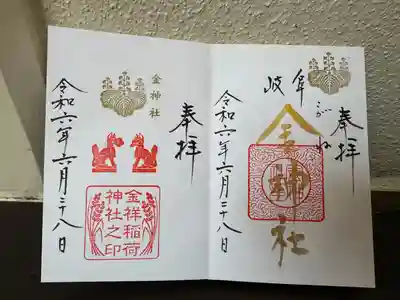 奉拝
岐阜
こがね
金神社
令和六年六月二十八日
奉拝
金神社
金祥稲荷
神社之印
令和六年六月二十八日